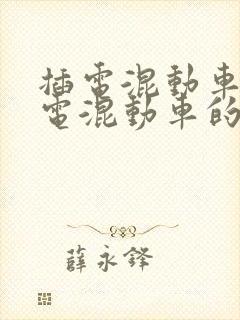 插電混動車
電混動車的
薛永鋒